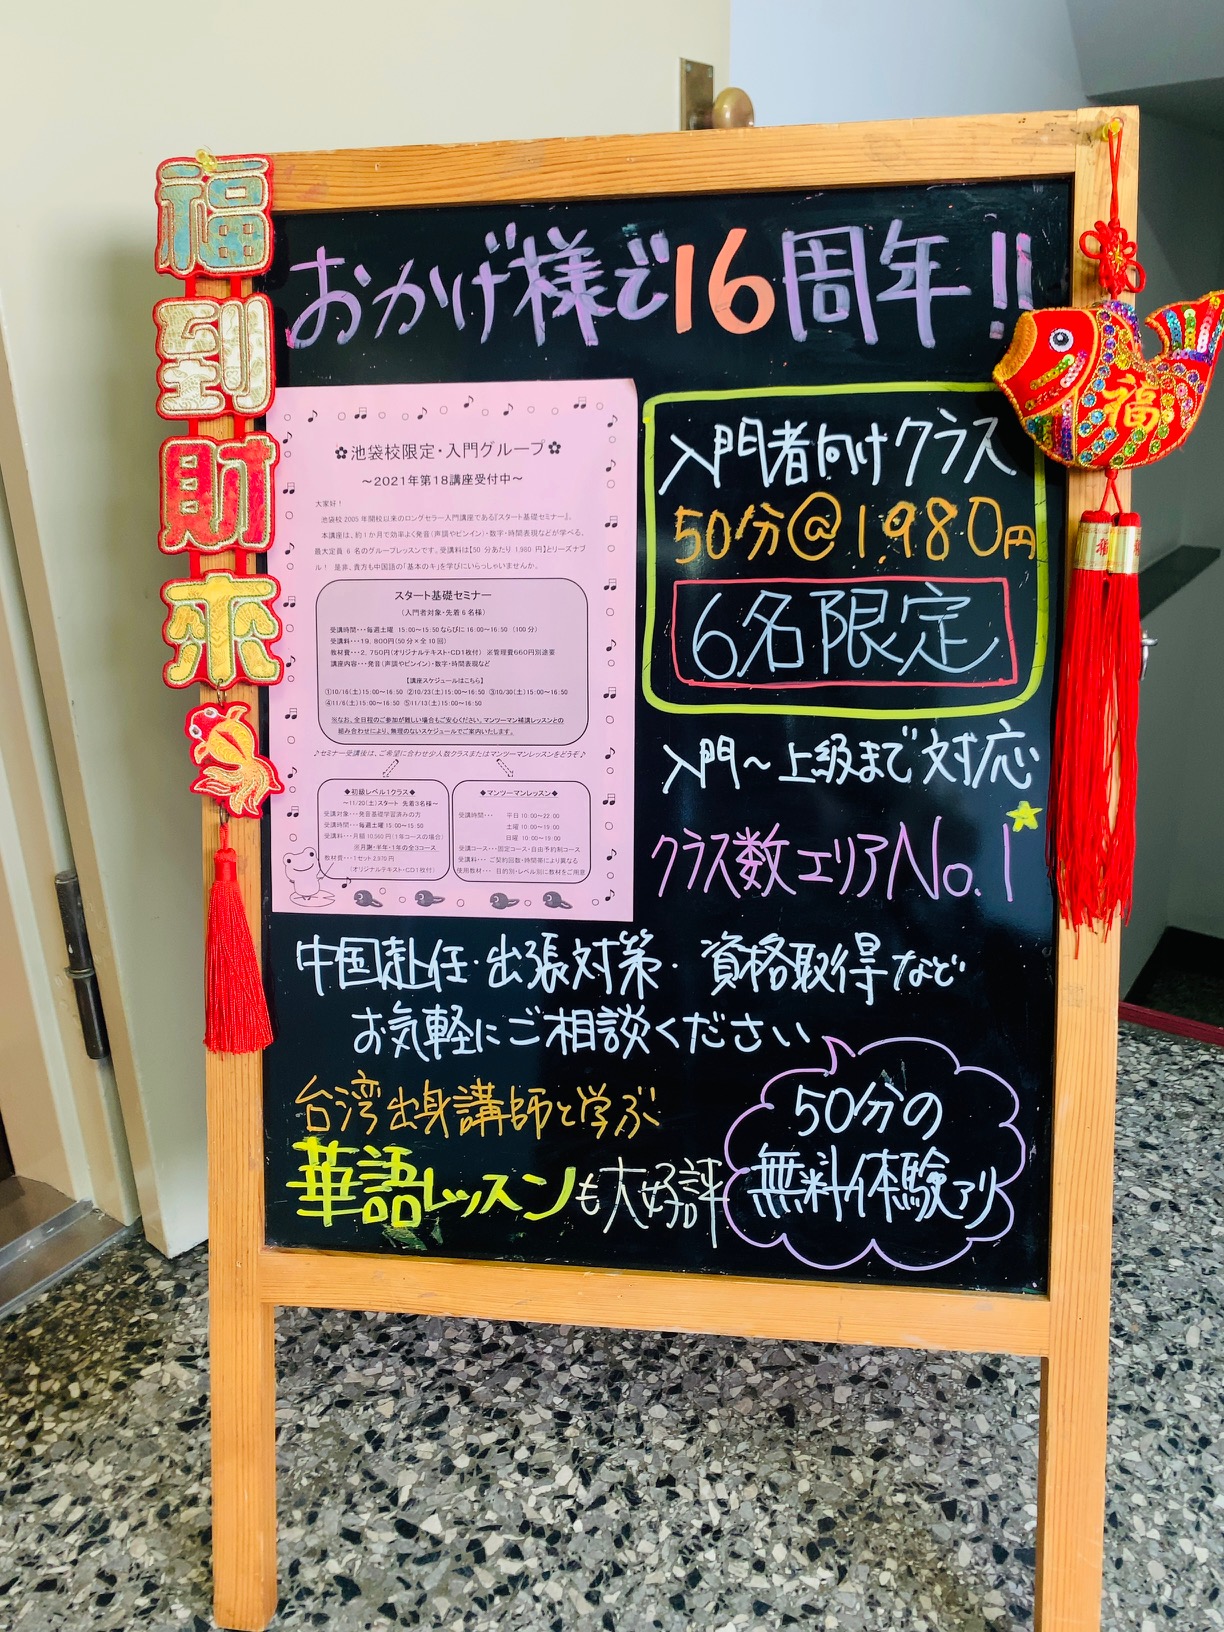 福到財來
おかげ様で16周年!!
✿池袋校限定・入門グループ✿
～2021年第18講座受付中～
大家好！
池袋校2005年開校以来のロングセラー入門講座である『スタート基礎セミナー』。
本講座は、約1か月で効率よく発音(声調やピンイン)・数字・時間表現などが学べる、
最大定員6名のグループレッスンです。受講料は【50分あたり1,980円】とリーズナブ
ル！ 是非、貴方も中国語の「基本のキ」を学びにいらっしゃいませんか。
スタート基礎セミナー
(入門者対象・先着6名様)
受講時間・・・毎週土曜 15:00～15:50ならびに16:00～16:50 (100分)
受講料・・・19,800円(50分×全10回)
教材費・・・2,750円(オリジナルテキスト・CD1枚付) ※管理費660円別途要
講座内容・・・発音(声調やピンイン)・数字・時間表現など
【講座スケジュールはこちら】
①10/16(土)15:00～16:50 ②10/23(土)15:00～16:50 ③10/30(土)15:00～16:50
④11/6(土)15:00～16:50 ⑤11/13(土)15:00～16:50
※なお、全日程のご参加が難しい場合もご安心ください。マンツーマン補講レッスンとの
組み合わせにより、無理のないスケジュールでご案内いたします。
♪セミナー受講後は、ご希望に合わせ少人数クラスまたはマンツーマンレッスンをどうぞ♪
◆初級レベル1クラス◆
～11/20(土)スタート 先着3名様～
受講対象・・・発音基礎学習済みの方
受講時間・・・毎週土曜15:00～15:50
受講料・・・月額10,560円(1年コースの場合)
※月謝・半年・1年の全3コース
教材費・・・1セット2,970円
(オリジナルテキスト・CD1枚付)
◆マンツーマンレッスン◆
受講時間・・・ 平日10:00～22:00
土曜10:00～19:00
日曜10:00～19:00
受講コース・・・固定コース・自由予約制コース
受講料・・・ご契約回数・時間帯により異なる
使用教材・・・目的別・レベル別に教材をご用意
入門者向けクラス
50分@1,980円
6名限定
入門～上級まで対応
クラス数エリアNo.1
中国赴任・出張対策・資格取得など
お気軽にご相談ください
台湾出身講師と学ぶ
華語レッスンも大好評
50分の
無料体験アリ
福